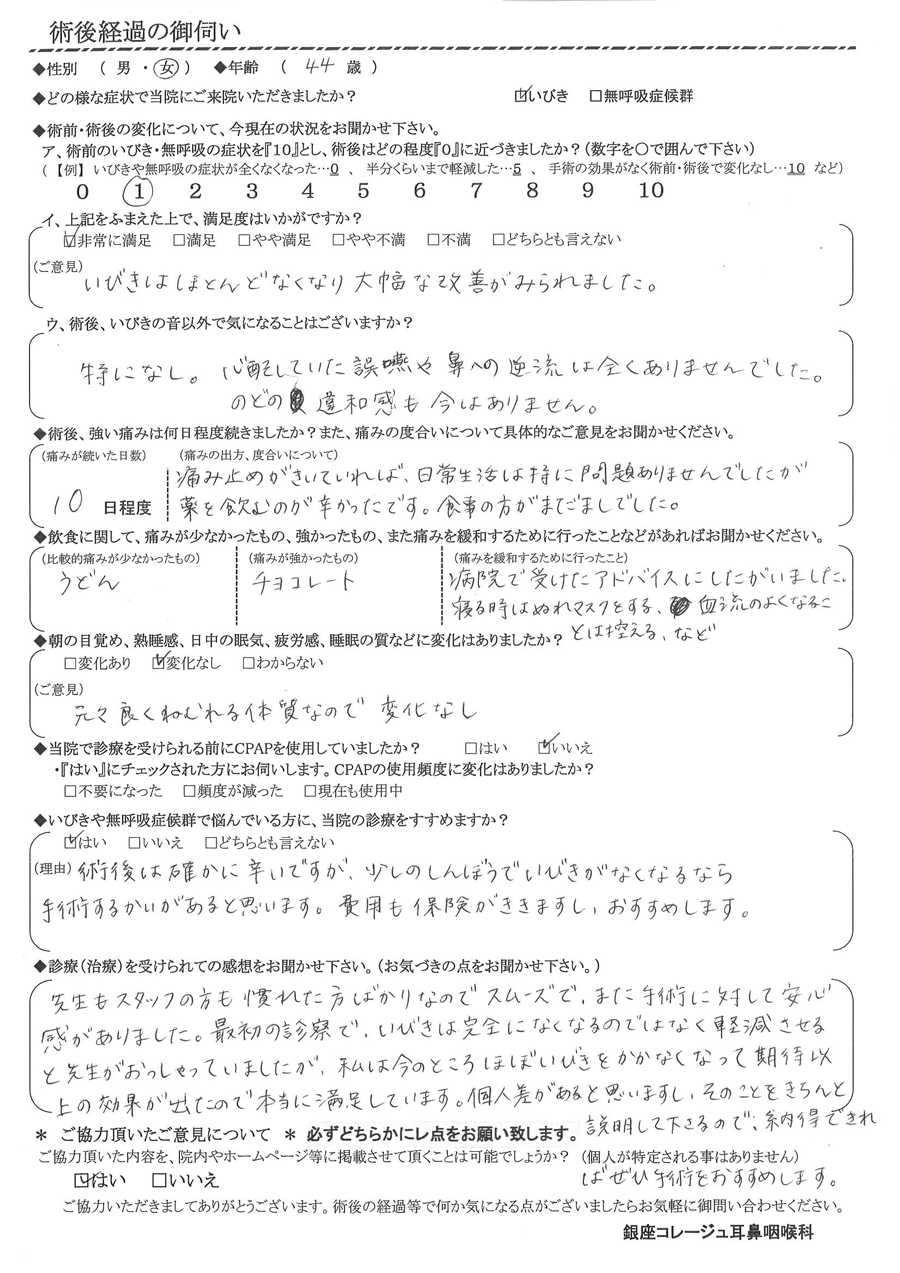 術後経過の御伺い
◆性別 ( 男 ・ 女 ) ◆年齢 ( 44 歳 )
◆どの様な症状で当院にご来院いただきましたか? ☑いびき □無呼吸症候群
◆術前・術後の変化について、今現在の状況をお聞かせ下さい。
ア、術前のいびき・無呼吸の症状を『10』とし、術後はどの程度『0』に近づきましたか?(数字を○で囲んで下さい)
(【例】いびきや無呼吸の症状が全くなくなった…0 、 半分くらいまで軽減した…5 、 手術の効果がなく術前・術後で変化なし…10 など)
0 1 2 3 4 5 6 7 8 9 10
イ、上記をふまえた上で、満足度はいかがですか?
☑非常に満足 □満足 □やや満足 □やや不満 □不満 □どちらとも言えない
(ご意見)
いびきはほとんどなくなり大幅な改善がみられました。
ウ、術後、いびきの音以外で気になることはございますか?
特になし。心配していた誤嚥や鼻への逆流は全くありませんでした。
のどの違和感も今はありません。
◆術後、強い痛みは何日程度続きましたか?また、痛みの度合いについて具体的なご意見をお聞かせください。
(痛みが続いた日数) (痛みの出方、度合いについて)
痛み止めがきいていれば、日常生活は特に問題ありませんでしたが
10 日程度 薬を飲むのが辛かったです。食事の方がまだましでした。
◆飲食に関して、痛みが少なかったもの、強かったもの、また痛みを緩和するために行ったことなどがあればお聞かせください。
(比較的痛みが少なかったもの) (痛みが強かったもの) (痛みを緩和するために行ったこと)
うどん チョコレート 病院で受けたアドバイスにしたがいました。
寝る時はぬれマスクをする、血流のよくなるこ
とは控える、など
◆朝の目覚め、熟睡感、日中の眠気、疲労感、睡眠の質などに変化はありましたか?
□変化あり ☑変化なし □わからない
(ご意見)
元々良くねむれる体質なので変化なし
◆当院で診療を受けられる前にCPAPを使用していましたか? □はい ☑いいえ
・『はい』にチェックされた方にお伺いします。CPAPの使用頻度に変化はありましたか?
□不要になった □頻度が減った □現在も使用中
◆いびきや無呼吸症候群で悩んでいる方に、当院の診療をすすめますか?
☑はい □いいえ □どちらとも言えない
(理由) 術後は確かに辛いですが、少しのしんぼうでいびきがなくなるなら
手術するかいがあると思います。費用も保険がききますし、おすすめします。
◆診療(治療)を受けられての感想をお聞かせ下さい。(お気づきの点をお聞かせ下さい。)
先生もスタッフの方も慣れた方ばかりなのでスムーズで、また手術に対して安心
感がありました。最初の診察で、いびきは完全になくなるのではなく軽減させる
と先生がおっしゃっていましたが、私は今のところほぼいびきをかかなくなって期待以
上の効果が出たので本当に満足しています。個人差があると思いますし、そのことをきちんと
説明して下さるので、納得できれ
ばぜひ手術をおすすめします。
* ご協力頂いたご意見について * 必ずどちらかにレ点をお願い致します。
ご協力頂いた内容を、院内やホームページ等に掲載させて頂くことは可能でしょうか? (個人が特定される事はありません)
☑はい □いいえ
ご協力いただきましてありがとうございます。術後の経過等で何か気になる点がございましたらお気軽に御問い合わせください。
銀座コレージュ耳鼻咽喉科